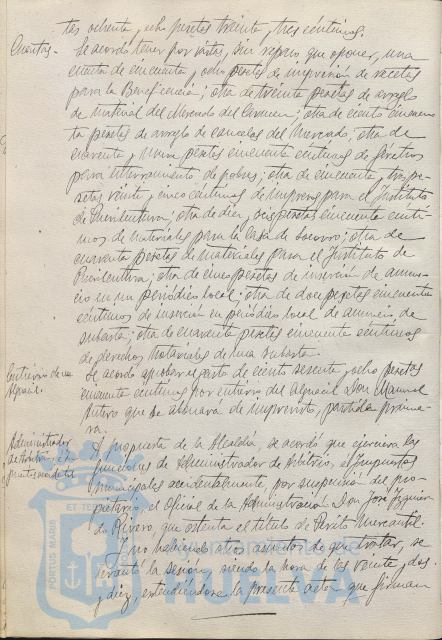 tas ochenta y ocho pesetas treinta y tres céntimos.
Cuentas.- Se acordó tener por vistas, sin reparo que oponer, una
cuenta de cincuenta y ocho pesetas de impresión de recetas
para la Beneficencia; otra de treinta pesetas de arreglo
de material del Mercado del Carmen; otra de ciento cincuen-
ta pesetas de arreglo de canales del Mercado; otra de
cuarenta y nueve pesetas cincuenta céntimos de féretros
para enterramiento de pobres; otra de cincuenta y tres pe-
setas veinte y cinco céntimos de impresos para el Instituto
de Puericultura; otra de diez y seis pesetas cincuenta cénti-
mos de materiales para la Casa de Socorro; otra de
cuarenta pesetas de materiales para el Instituto de
Puericultura; otra de cinco pesetas de inserción de anun-
cio en un periódico local; otra de doce pesetas cincuenta
céntimos de inserción en periódico local de anuncio de
subasta; otra de cuarenta pesetas cincuenta céntimos
de derechos notariales de una subasta.
Entierro de un
Alguacil.
Se acordó aprobar el gasto de ciento sesenta y ocho pesetas
cincuenta céntimos por entierro del alguacil Don Manuel
que se abonará de imprevistos, partida prime-
ra.
Administrador
de Arbitrios
A propuesta de la Alcaldía, se acordó que ejerciera las
funciones de Administrador de Arbitrios e Impuestos
municipales accidentalmente, por suspensión del pro-
pietario, el Oficial de la Administración Don José Izquier-
do Rivero, que ostenta el título de Perito Mercantil.
Y no habiendo otros asuntos de que tratar, se
levantó la sesión, siendo la hora de las veinte y dos
y diez, extendiéndose la presente acta que firman
PORTUS MARIS
ET TERRAE
HUELVA